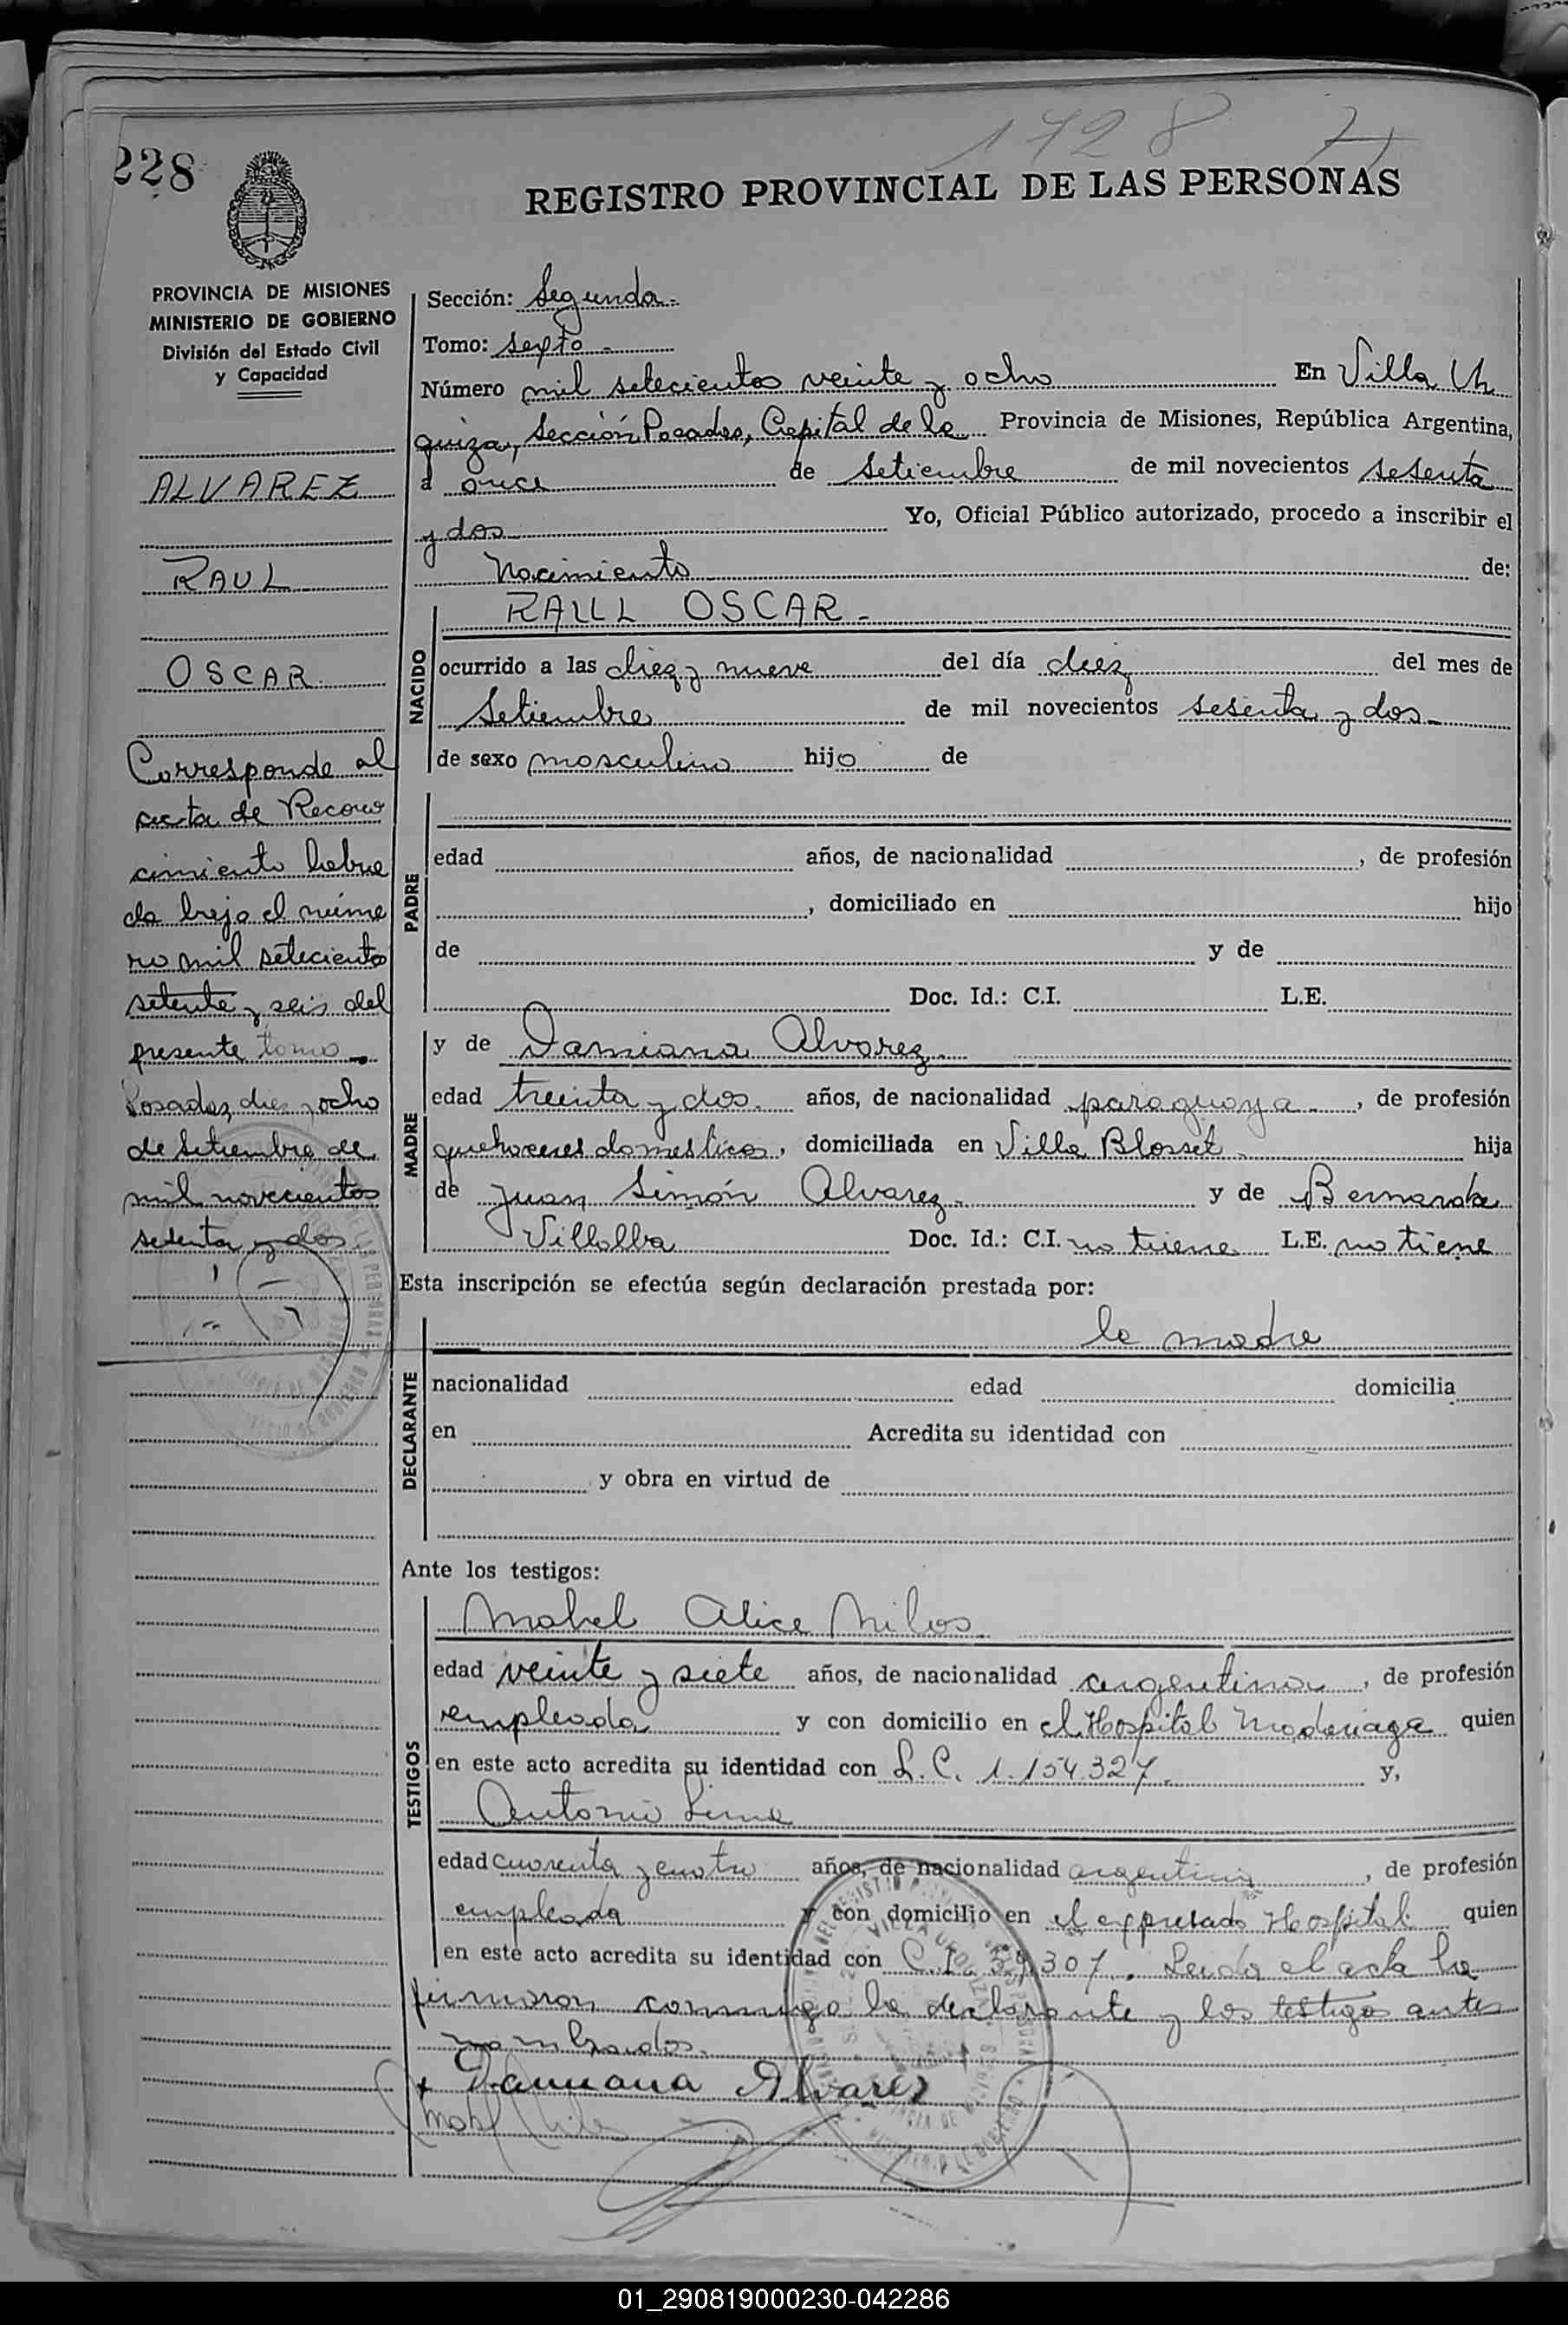 1728
228
REGISTRO PROVINCIAL DE LAS PERSONAS
PROVINCIA DE MISIONES
MINISTERIO DE GOBIERNO
División del Estado Civil
y Capacidad
ALVAREZ
RAUL
OSCAR
Corresponde al
acta de Recono
cimiento labra
da bajo el núme
ro mil setecientos
setenta y seis del
presente tomo
Posadas, diez y ocho
de Setiembre de
mil novecientos
sesenta y dos
Sección: Segunda.-
Tomo: sexto.-
Número mil setecientos veinte y ocho En Villa Ur
quiza, Sección Posadas, Capital de la Provincia de Misiones, República Argentina,
a once de Setiembre de mil novecientos sesenta
y dos Yo, Oficial Público autorizado, procedo a inscribir el
Nacimiento de:
NACIDO
RAUL OSCAR.-
ocurrido a las diez y nueve del día diez del mes de
Setiembre de mil novecientos sesenta y dos.-
de sexo masculino hijo de
PADRE
edad años, de nacionalidad , de profesión
, domiciliado en hijo
de y de
Doc. Id.: C.I. L.E.
MADRE
y de Damiana Alvarez.
edad treinta y dos años, de nacionalidad paraguaya , de profesión
quehaceres domesticos, domiciliada en Villa Blosset hija
de Juan Simón Alvarez y de Bernarda
Villalba Doc. Id.: C.I. no tiene L.E. no tiene
Esta inscripción se efectúa según declaración prestada por:
DECLARANTE
la madre
nacionalidad edad domicilia
en Acredita su identidad con
y obra en virtud de
Ante los testigos:
TESTIGOS
Mabel Alice
edad veinte y siete años, de nacionalidad argentina , de profesión
empleada y con domicilio en el Hospital Madariaga quien
en este acto acredita su identidad con L.C. 1.154.327. y,
Antonio
edad cuarenta y cuatro años, de nacionalidad argentina , de profesión
empleada y con domicilio en el expresado Hospital quien
en este acto acredita su identidad con C.I. 307. Leida el acta la
firmaron conmigo la declarante y los testigos antes
nombrados.
x Damiana Alvarez
01_290819000230-042286